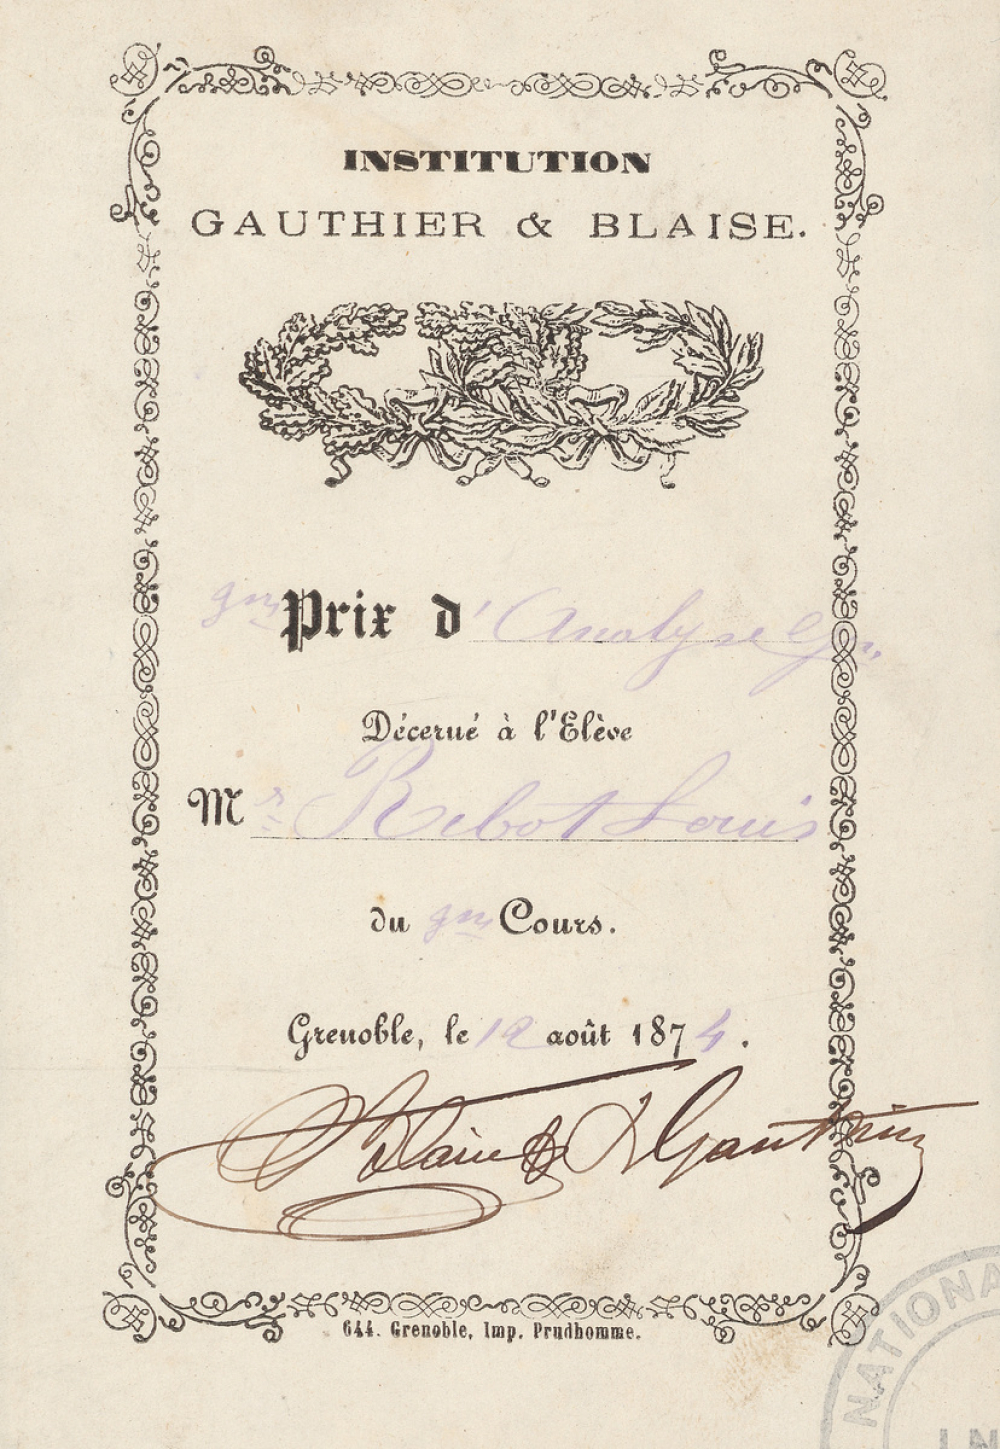 INSTITUTION
GAUTHIER & BLAISE.
Prix d' Analyse Gr.
Décerné à l'Elève
Mr Rebot Louis
du Cours.
Grenoble, le 12 août 1874.
Blaise & Gauthier
644. Grenoble, Imp. Prudhomme.
NATIONA
IN